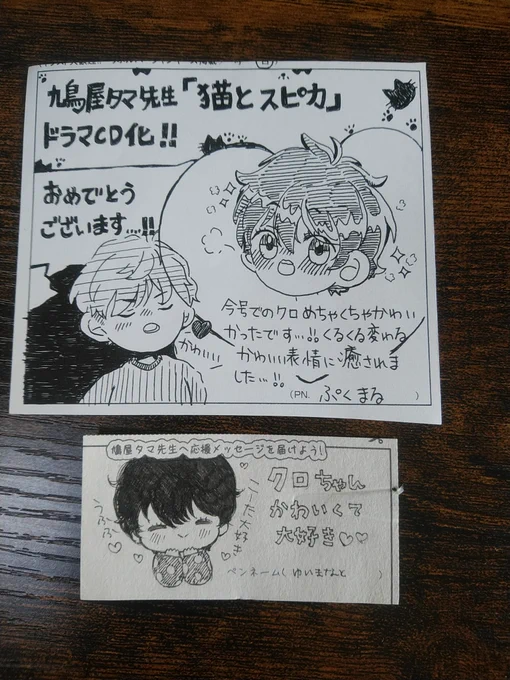 鳩屋タマ先生「猫とスピカ」
ドラマCD化!!
おめでとう
ございます…!!
かわいい
今号でのクロめちゃくちゃかわい
かったです…!!くるくる変わる
かわいい表情に癒されま
した…!!
(PN. ぷくまる )
鳩屋タマ先生へ応援メッセージを届けよう!
クロちゃん
かわいくて
大好き♡♡
うふふ
大好き
ペンネーム( )